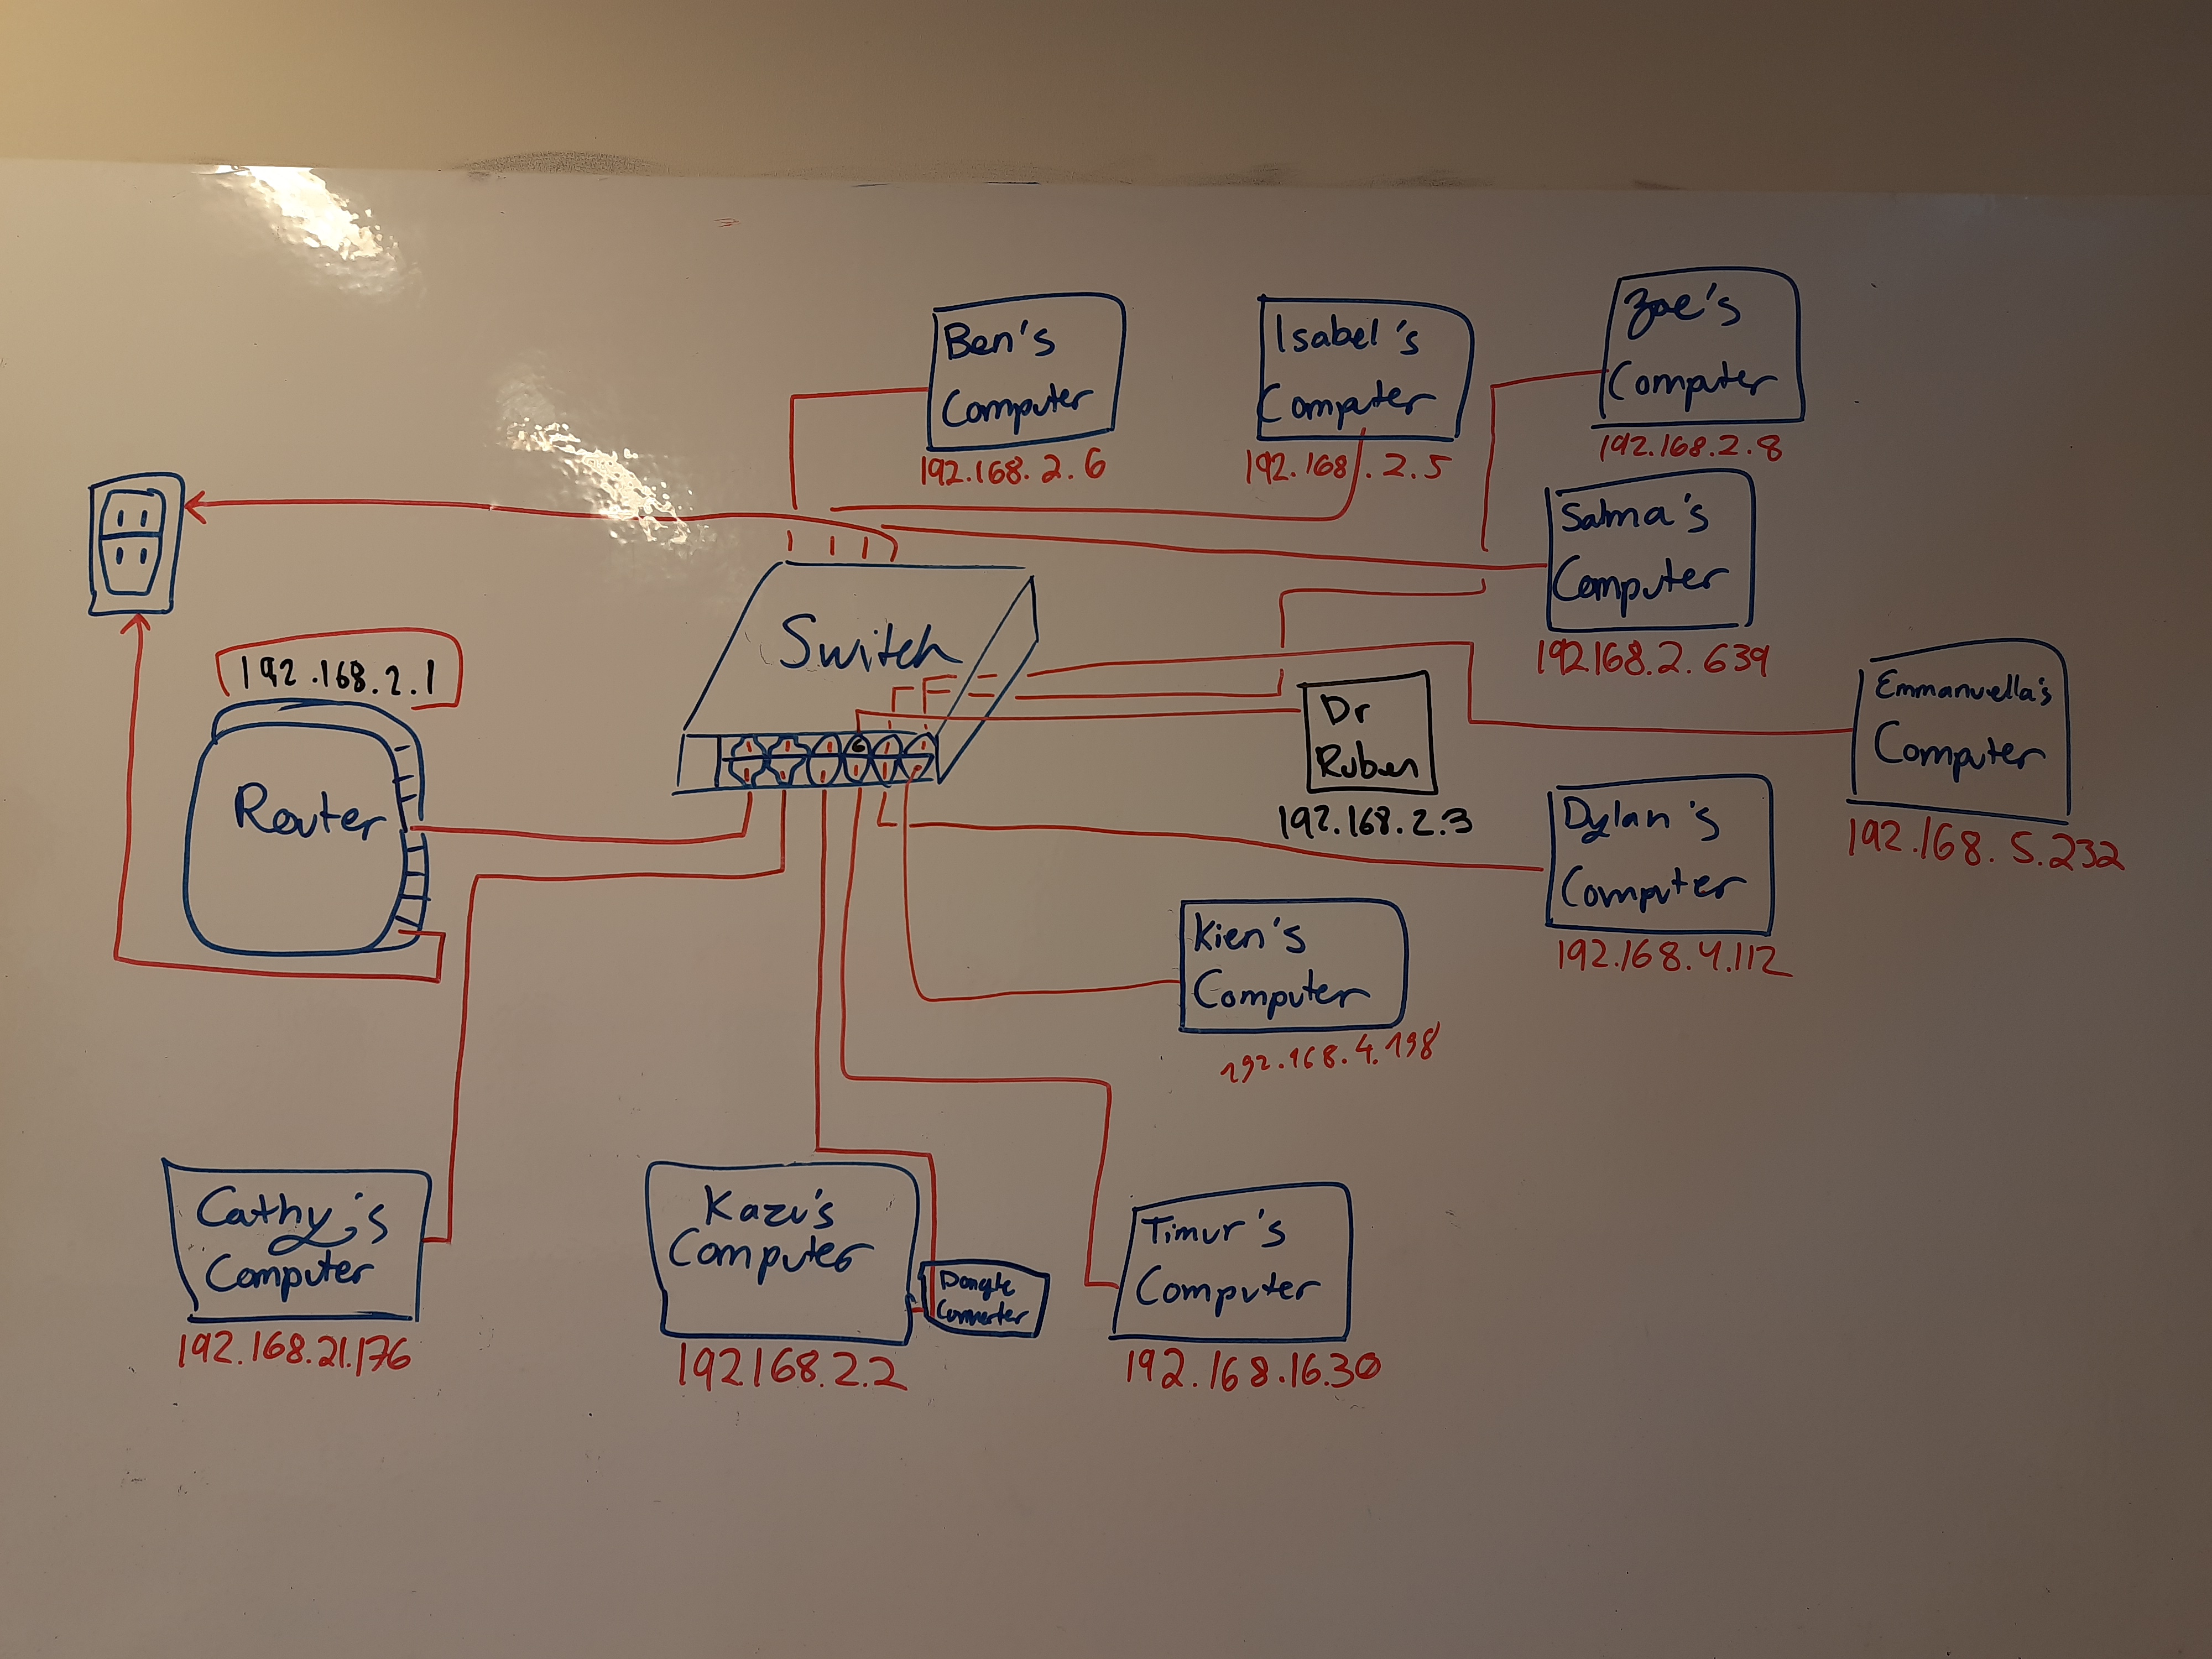 Ben's
Computer
192.168.2.6
Isabel's
Computer
192.168.2.5
Zoe's
Computer
192.168.2.8
Salma's
Computer
192168.2.639
Switch
6
192.168.2.1
Router
Dr
Ruben
192.168.2.3
Emmanuella's
Computer
192.168.5.232
Dylan's
Computer
192.168.4.112
Kien's
Computer
192.168.4.198
Cathy's
Computer
192.168.21.176
Kazu's
Computer
192168.2.2
Dongle
Converter
Timur's
Computer
192.168.16.30